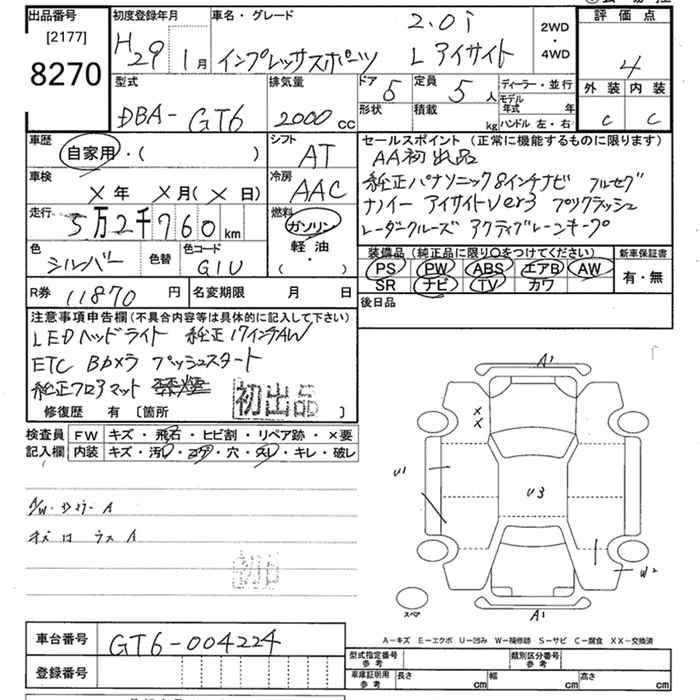 出品番号
[2177]
8270
初度登録年月
H29 1月
車名・グレード
2.0i
インプレッサスポーツ L アイサイト
2WD
・
4WD
評価点
4
外装 内装
C C
型式
DBA- GT6
排気量
2000 cc
ドア 5
定員 5人
形状
積載 kg
ディーラー・並行
モデル年式 年
ハンドル 左・右
車歴
自家用・( )
シフト
AT
車検
×年 ×月(×日)
冷房
AAC
走行
5万2千760km
燃料
ガソリン
軽油
( )
色
シルバー
色替
色コード
G1U
セールスポイント (正常に機能するものに限ります)
AA初出品
純正パナソニック8インチナビ フルセグ
ナノイー アイサイトver3 プリクラッシュ
レーダークルーズ アクティブレーンキープ
装備品 (純正品に限り○をつけてください)
PS PW ABS エアB AW
SR ナビ TV カワ
新車保証書
有・無
R券 11870円
名変期限 月 日
後日品
注意事項申告欄 (不具合内容等は具体的に記入して下さい)
LEDヘッドライト 純正17インチAW
ETC Bカメラ プッシュスタート
純正フロアマット
初出品
修復歴 有 [箇所 ]
検査員記入欄
FW キズ・飛石・ヒビ割・リペア跡・×要
内装 キズ・汚レ・コゲ・穴・スレ・キレ・破レ
A/W・
A1
××
U1
U3
W2
A1
スペア
A-キズ E-エクボ U-凹み W-補修跡 S-サビ C-腐食 XX-交換済
車台番号 GT6-004224
登録番号
型式指定番号 参考
類別区分番号 参考
車庫証明用 参考 長さ cm 幅 cm 高さ cm